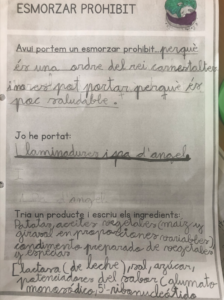 ESMORZAR PROHIBIT
Avui portem un esmorzar prohibit... perquè
és una ordre del rei carnestoltes
i no es pot portar perquè és
poc saludable.
Jo he portat:
llaminadures i pa d'àngel
Tria un producte i escriu els ingredients:
Patatas, aceites vegetales (maíz y
girasol en proporciones variables),
condimento preparado de vegetales
y especias
[lactosa (de leche), sal, azúcar,
potenciadores del sabor (glutamato
monosódico, 5'-ribonucleótido